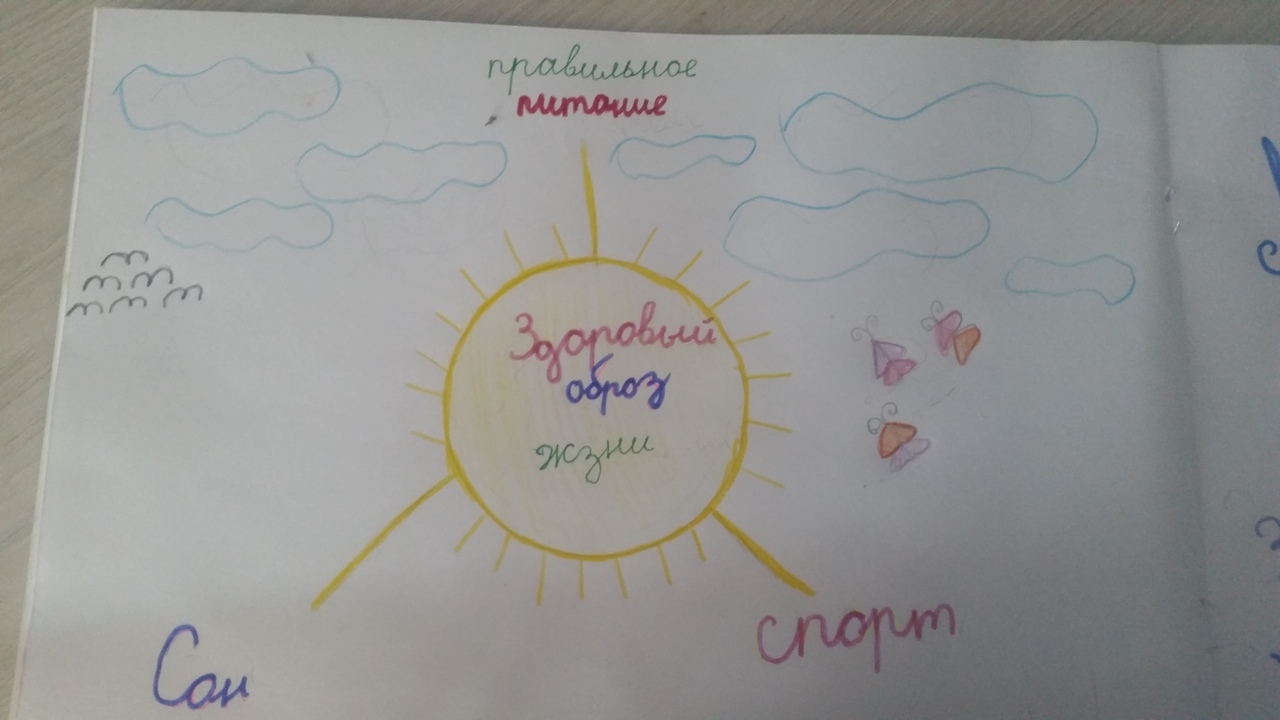 правильное
питание
Здоровый
образ
жзни
Сон
спорт